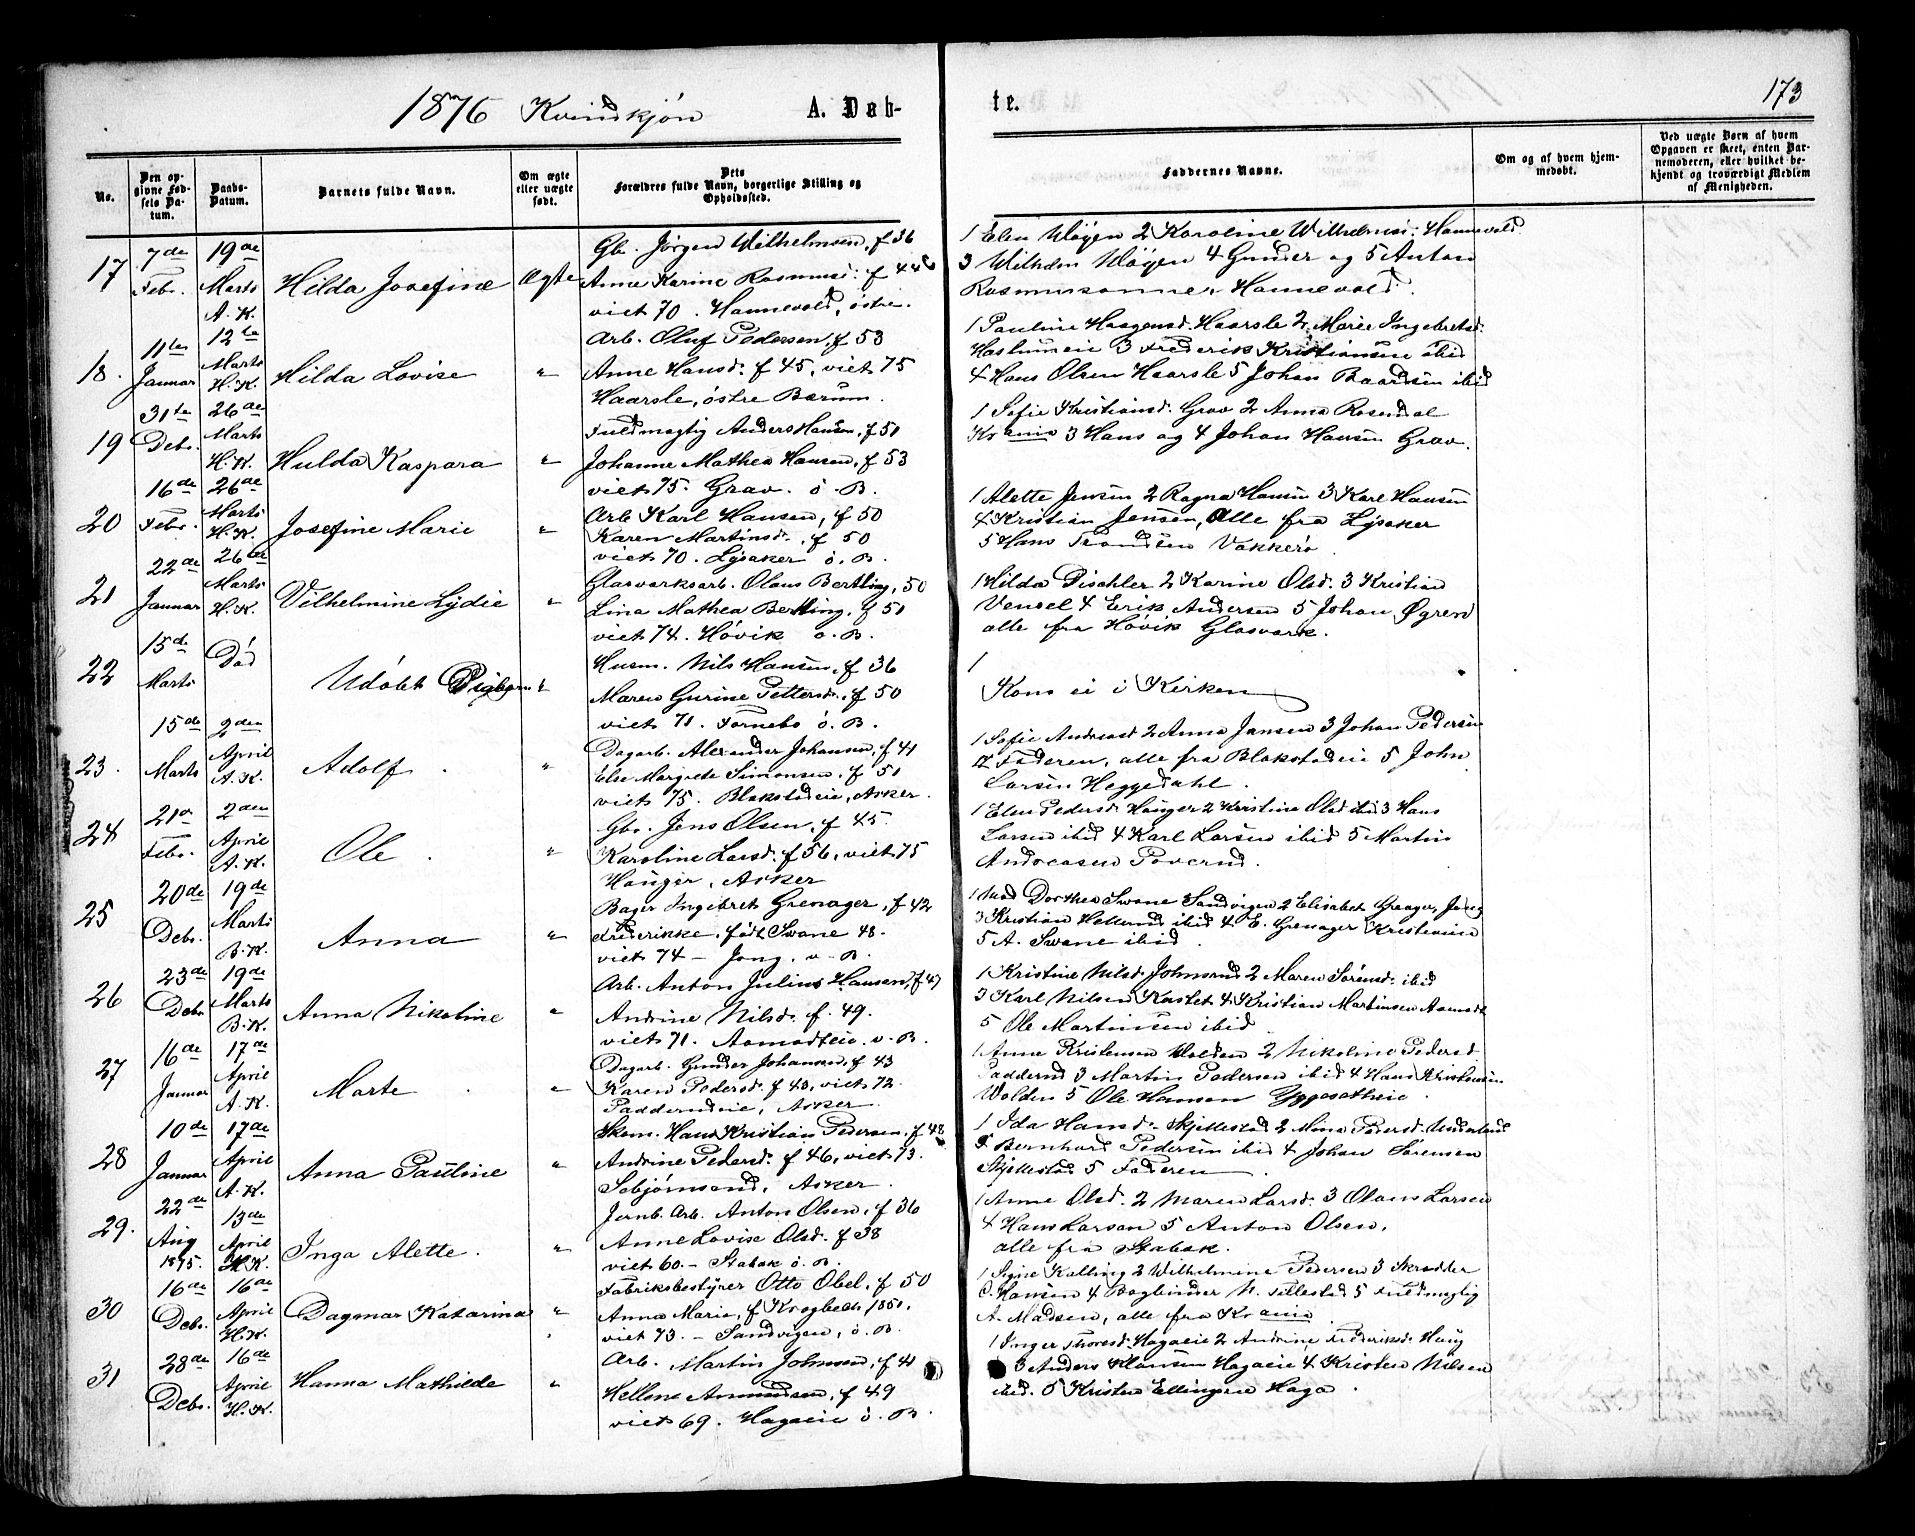 1876 Kvindkjøn A. Døb-
te. 173
No.
Den opgivne Fødsels Datum.
Daabs-Datum.
Barnets fulde Navn.
Om ægte eller uægte født.
Dets Forældres fulde Navn, borgerlige Stilling og Opholdssted.
Faddernes Navne.
Om og af hvem hjemmedøbt.
Ved uægte Børn af hvem Opgaven er skeet, enten Barnemoderen, eller hvilket bekjendt og troværdigt Medlem af Menigheden.
17 7de Febr. 19de Marts A.K. Hilda Josefine Ægte
Gb. Jørgen Wilhelmsen, f 36
Anne Karine Rasmusd: f 44
viet 70. Hannevold, østre.
1 Elen Wøyen 2 Karoline Wilhelmsd. Hannevold
3 Wilhelm Wøyen 4 Gunder og 5 Anton
Rasmussønner Hannevold.
18. 11te Januar 12te Marts H.K. Hilda Lovise "
Arb. Oluf Pedersen, f 53
Anne Hansd. f 45, viet 75
Haarsle, østre Bærum.
1 Pauline Haagensd. Haarsle 2 Marie Ingebretsd.
Haslumeie 3 Frederik Kristiansen ibid
4 Hans Olsen Haarsle 5 Johan Baardsen ibid
19 31te Debr. 26de Marts H.K. Hulda Kaspara "
Fuldmægtig Anders Hansen, f 51
Johanne Mathea Hansen, f 53
viet 75. Grav. ö. B.
1 Sofie Kristiansd. Grav 2 Anna Rosendal
Krania 3 Hans og 4 Johan Hansen Grav.
20 16de Febr. 26de Marts H.K. Josefine Marie "
Arb. Karl Hansen, f 50
Karen Martinsd., f 50
viet 70. Lysaker ö. B.
1 Alette Jensen 2 Ragna Hansen 3 Karl Hansen
4 Kristian Jensen, Alle fra Lysaker
5 Hans Trondsen Vækkerø.
21 22de Januar 26de Marts H.K. Vilhelmine Lydie "
Glasværksarb. Olaus Bertling, 50
Lina Mathea Bertling, f 51
viet 74. Høvik ö. B.
1 Hilda Pischler 2 Karine Olsd. 3 Kristian
Vensel 4 Erik Andersen 5 Johan Øgren
alle fra Høvik Glasværk.
22 15d. Marts Død Udøbt Pigebarn "
Husm. Nils Hansen, f 36
Maren Gurine Pettersd., f 50
viet 71. Fornebo ö. B.
1
Kons ei i Kirken
23. 15de Marts 2den April A.K. Adolf. "
Dagarb. Alexander Johansen, f 41
Else Margrete Simonsen, f 51
viet 75. Blakstadeie, Asker.
1 Sofie Andreasd 2 Anna Jansen 3 Johan Pedersen
4 Faderen, alle fra Blakstadeie 5 John
Larsen Heggedahl.
24 21de Febr. 2den April A.K. Ole. "
Gbr. Jens Olsen, f 45.
Karoline Larsd. f 56, viet 75
Hauger, Asker
1 Elen Pedersd. Hauger 2 Kristine Olsd ibid 3 Hans
Larsen ibid 4 Karl Larsen ibid 5 Martin
Andreasen Poverud.
25 20de Debr. 19de Marts B.K. Anna "
Bager Ingebret Grenager, f 42
Frederikke, født Svane 48.
viet 74 – Jong. v. B.
1 Mad Dorthea Svane Sandvigen 2 Elisabet Grenager, Jong
3 Kristian Hellund ibid 4 E. Grenager Kristiania
5 A. Svane ibid.
26 23de Debr. 19de Marts B.K. Anna Nikoline "
Arb. Anton Julius Hansen, f 47
Andrine Nilsd. f. 49.
viet 71. Aamodteie. v. B.
1 Kristine Nilsd. Johnsrud 2 Maren Sörensd. ibid
3 Karl Nilsen Kastet 4 Kristian Martinsen Aamodt
5 Ole Martinsen ibid
27 16de Januar 17de April A.K. Marte. "
Dagarb. Gunder Johansen, f 43
Karen Pedersd. f 43, viet 72.
Paddernd eie, Asker.
1 Anne Kristensen Wolden 2 Nikoline Pedersd.
Paddernd 3 Martin Pedersen ibid 4 Hans Kristensen
Wolden 5 Ole Hansen Yggesetheie.
28 10de Januar 17de April A.K. Anna Pauline "
Skom. Hans Kristian Pedersen, f 48
Andrine Pedersd. f 46, viet 73.
Sebjørnsend, Asker.
1 Ida Hansd. Skjellestad 2 Mina Pedersd. Underlund
3 Bernhard Pedersen ibid 4 Johan Sørensen
Skjellestad 5 Faderen
29. 22de Aug 1875. 13de April H.K. Inga Alette. "
Jernb. Arb. Anton Olsen, f 36
Anne Lovise Olsd. f 38
viet 60 – Stabæk ö. B.
1 Anne Olsd. 2 Maren Larsd. 3 Olaus Larsen
4 Hans Larsen 5 Anton Olsen,
alle fra Stabæk.
30 16de Debr. 16de April H.K. Dagmar Katarina "
Fabriksbestyrer Otto Obel, f 50
Anna Marie, f Krogbeck 1851.
viet 73. – Sandvigen, ö. B.
1 Signe Kalling 2 Wilhelmine Pedersen 3 Skrædder
C. Hansen 4 Bogbinder N. Tillestad 5 Fuldmægtig
A. Madsen, alle fra Krania
31 28de Debr. 16de April H.K. Hanna Mathilde "
Arb. Martin Johnsen, f 41
Hellene Amundsen, f 49
viet 69. Hagaeie ö. B.
1 Inger Thoresd. Hagaeie 2 Andrine Frederiksd. Haug
3 Anders Klausen Hagaeie 4 Kristen Nilsen
ibid. 5 Kristen Ellingsen Haga.